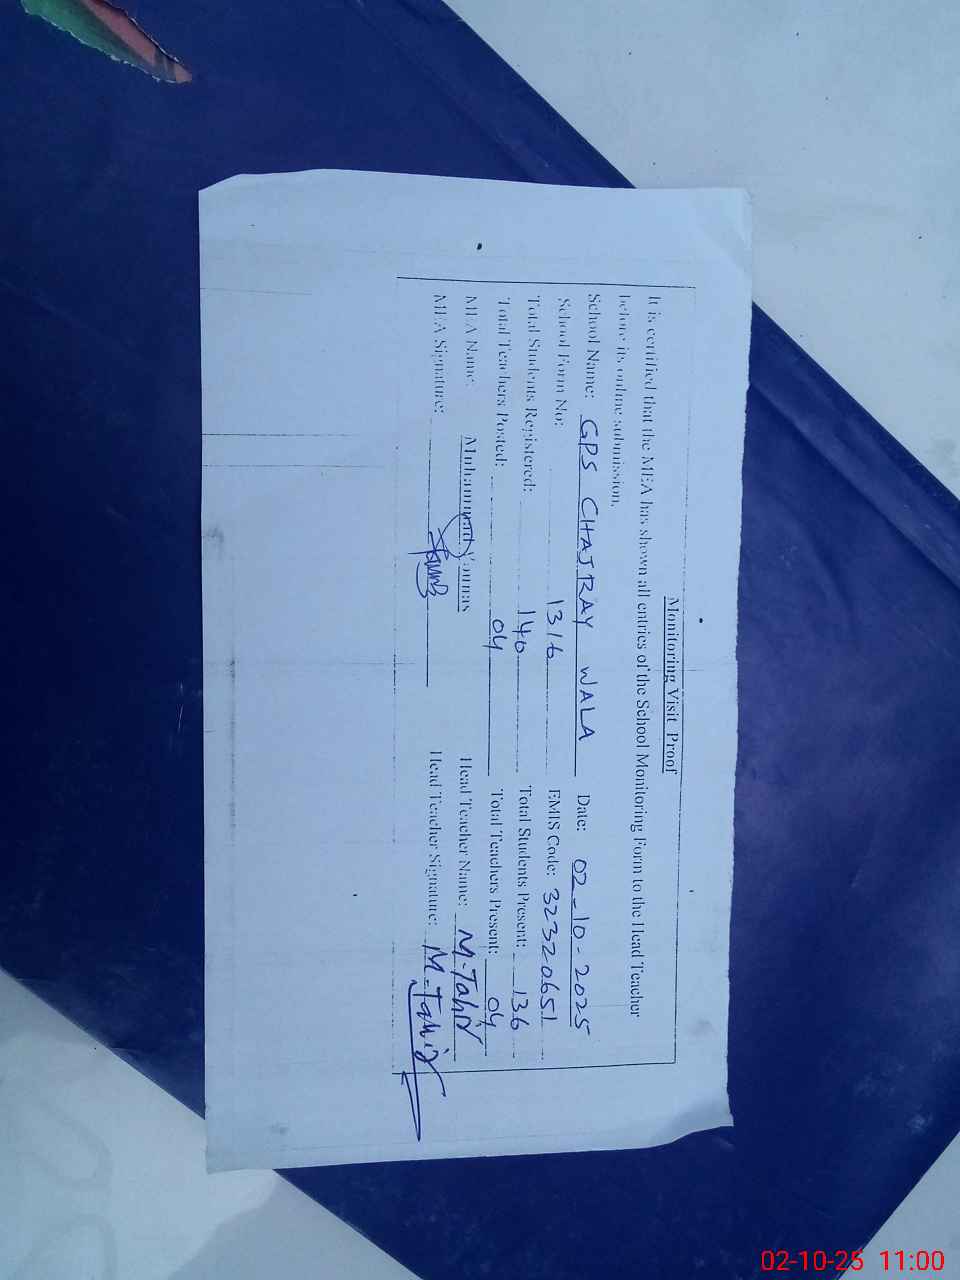 Monitoring Visit Proof
It is certified that the MEA has shown all entries of the School Monitoring Form to the Head Teacher
before its online submission.
School Name: GPS CHAJRAY WALA Date: 02-10-2025
School Form No: 1316 EMIS Code: 32320651
Total Students Registered: 140 Total Students Present: 136
Total Teachers Posted: 04 Total Teachers Present: 04
MEA Name: Muhammad Younas Head Teacher Name: M-Tahir
MEA Signature: Head Teacher Signature: M-Tahir
02-10-25 11:00